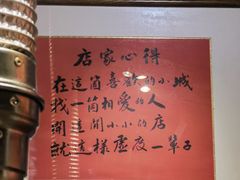 店家心得
在這箇喜歡的小城
找一箇相愛的人
開一間小小的店
就這樣虛度一輩子